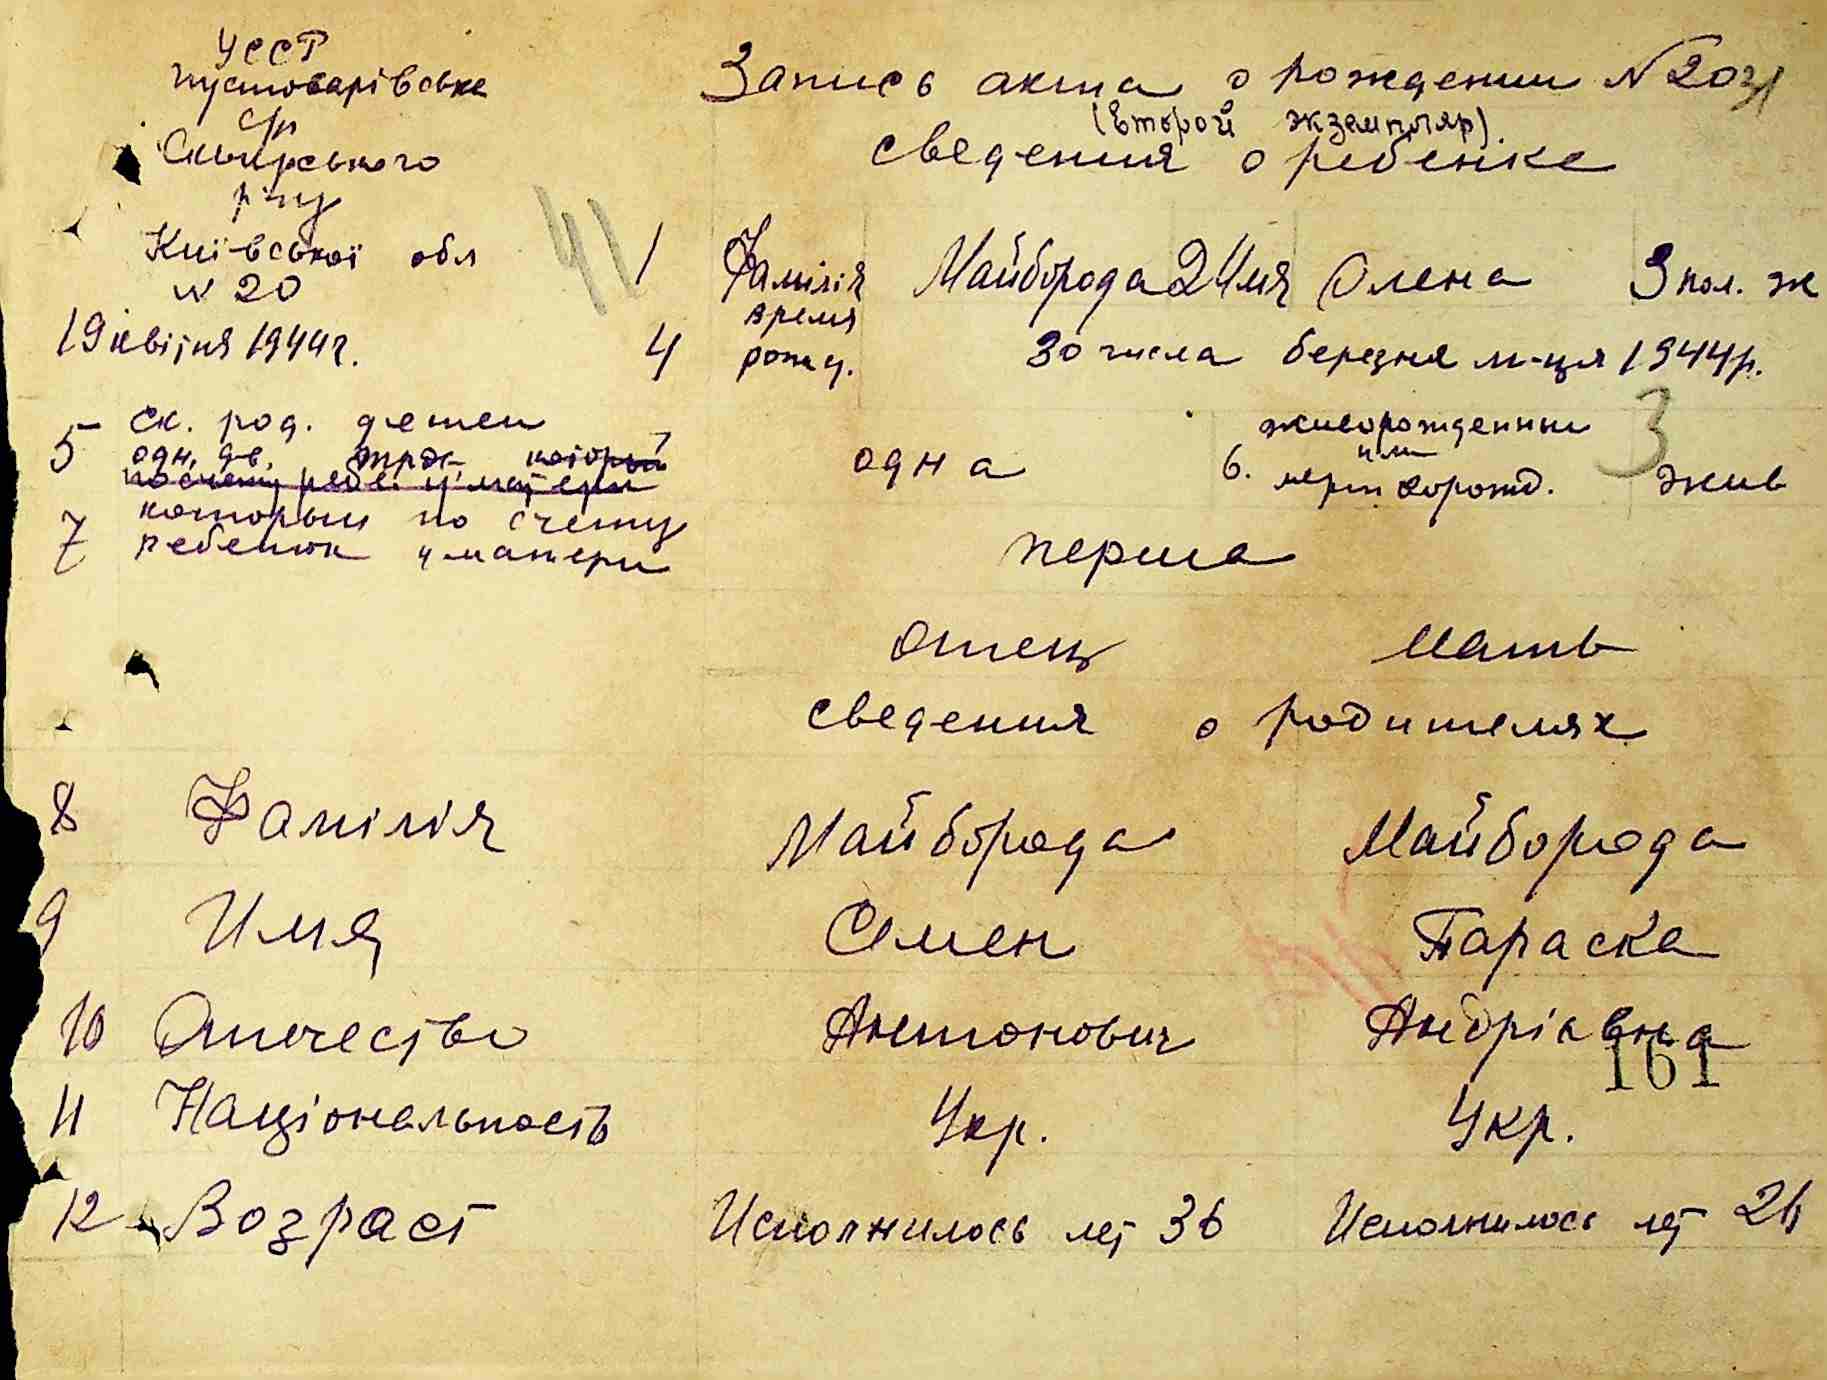 УССР
Пустоварівська
с/р
Сквирського
р-ну
Київської обл
N 20
19 квітня 1944 г.
Запись акта о рождении N 20
(Второй экземпляр)
сведения о ребенке
41
1 Фамілія Майборода 2 Имя Олена 3 пол. ж
4 время рожд. 30 числа березня м-ця 1944 р.
5 ск. род. детей
одн, дв, трое который
по счету ребе. у матери
одна
6. живорожденный
или
мертворожд. жив
3
7 который по счету
ребенок у матери
перша
отец мать
сведения о родителях
8 Фамілія Майборода Майборода
9 Имя Семен Параска
10 Отчество Антонович Андріавна
161
11 Національность Укр. Укр.
12 Возраст Исполнилось лет 36 Исполнилось лет 26